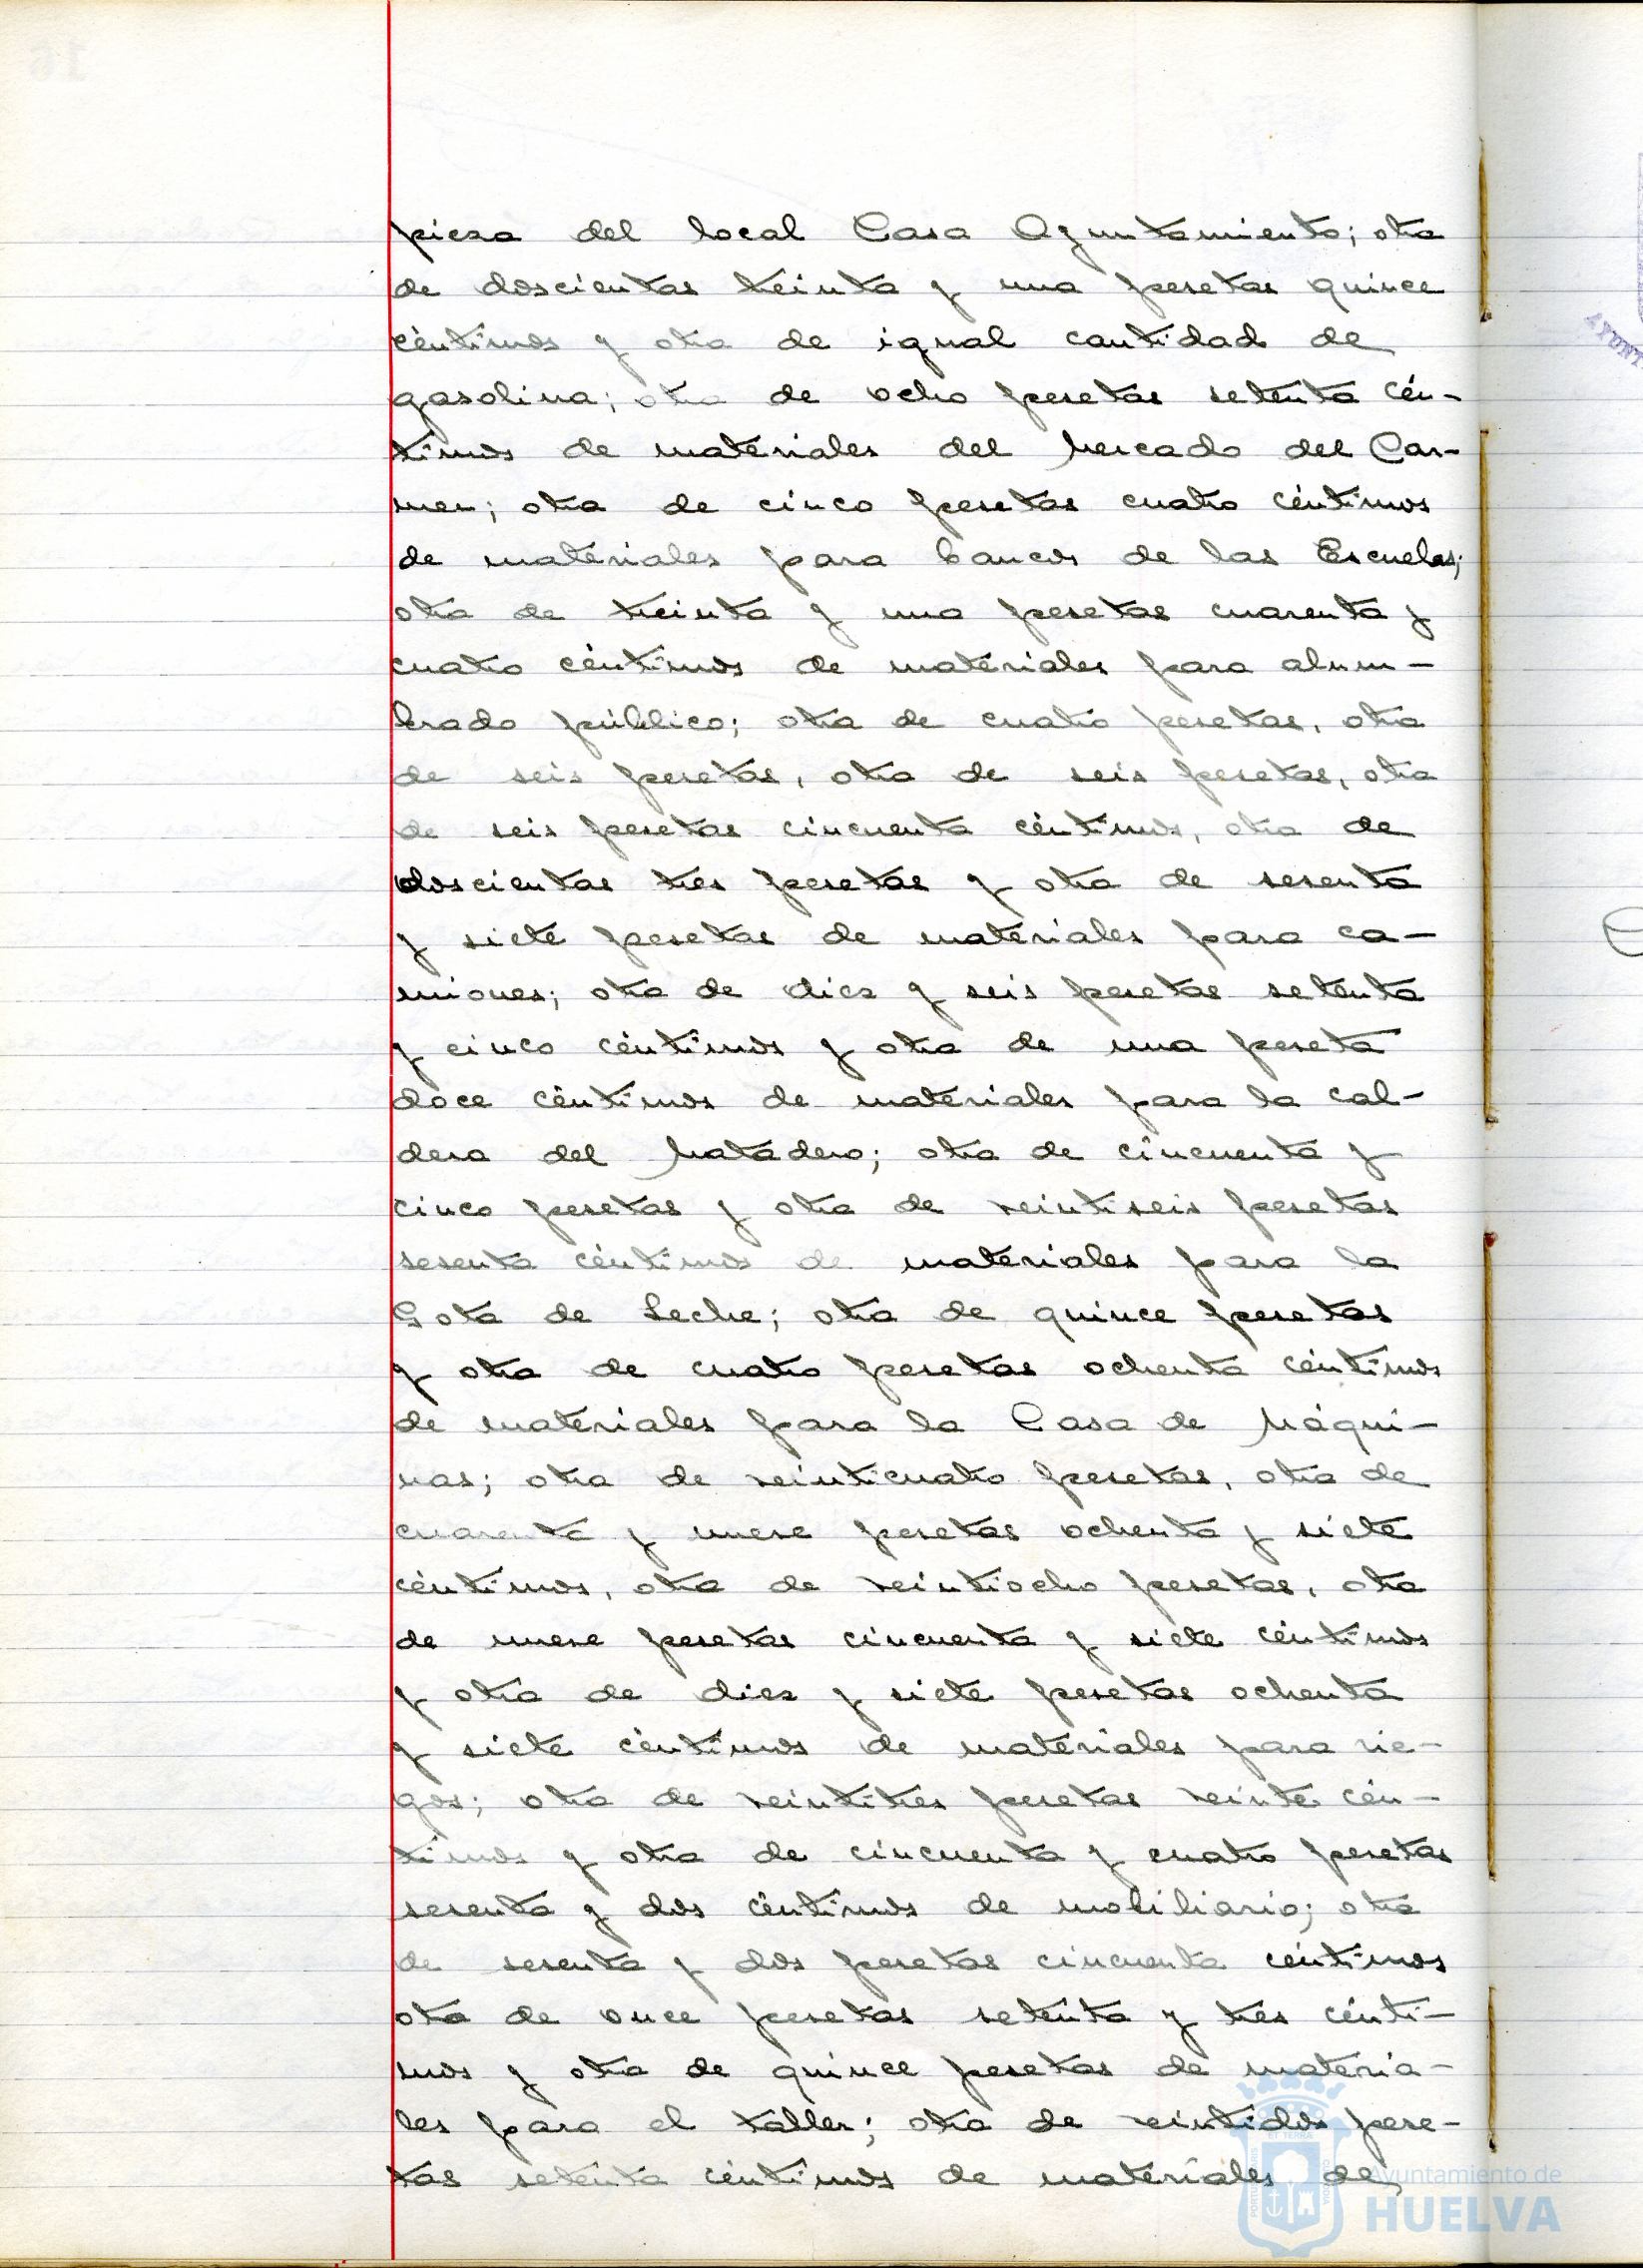 pieza del local Casa Ayuntamiento; otra
de doscientas treinta y una pesetas quince
céntimos y otra de igual cantidad de
gasolina; otra de ocho pesetas setenta cén-
timos de materiales del Mercado del Car-
men; otra de cinco pesetas cuatro céntimos
de materiales para bancos de las Escuelas;
otra de treinta y una pesetas cuarenta y
cuatro céntimos de materiales para alum-
brado público; otra de cuatro pesetas, otra
de seis pesetas, otra de seis pesetas, otra
de seis pesetas cincuenta céntimos, otra de
doscientas tres pesetas y otra de sesenta
y siete pesetas de materiales para ca-
miones; otra de diez y seis pesetas setenta
y cinco céntimos y otra de una peseta
doce céntimos de materiales para la cal-
dera del Matadero; otra de cincuenta y
cinco pesetas y otra de veintiseis pesetas
sesenta céntimos de materiales para la
Gota de Leche; otra de quince pesetas
y otra de cuatro pesetas ochenta céntimos
de materiales para la Casa de Máqui-
nas; otra de veinticuatro pesetas, otra de
cuarenta y nueve pesetas ochenta y siete
céntimos, otra de veintiocho pesetas, otra
de nueve pesetas cincuenta y siete céntimos
y otra de diez y siete pesetas ochenta
y siete céntimos de materiales para rie-
gos; otra de veintitres pesetas veinte cén-
timos y otra de cincuenta y cuatro pesetas
sesenta y dos céntimos de mobiliario; otra
de sesenta y dos pesetas cincuenta céntimos
otra de once pesetas setenta y tres cénti-
mos y otra de quince pesetas de materia-
les para el taller; otra de veintidos pese-
tas setenta céntimos de materiales de
Ayuntamiento de
HUELVA
AYUNT